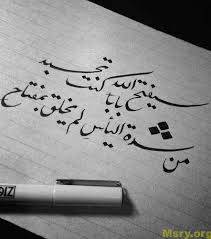 سيفتح الله باباً كنت تحسبه
من شدة اليأس لم يخلق بمفتاح
Msry.org